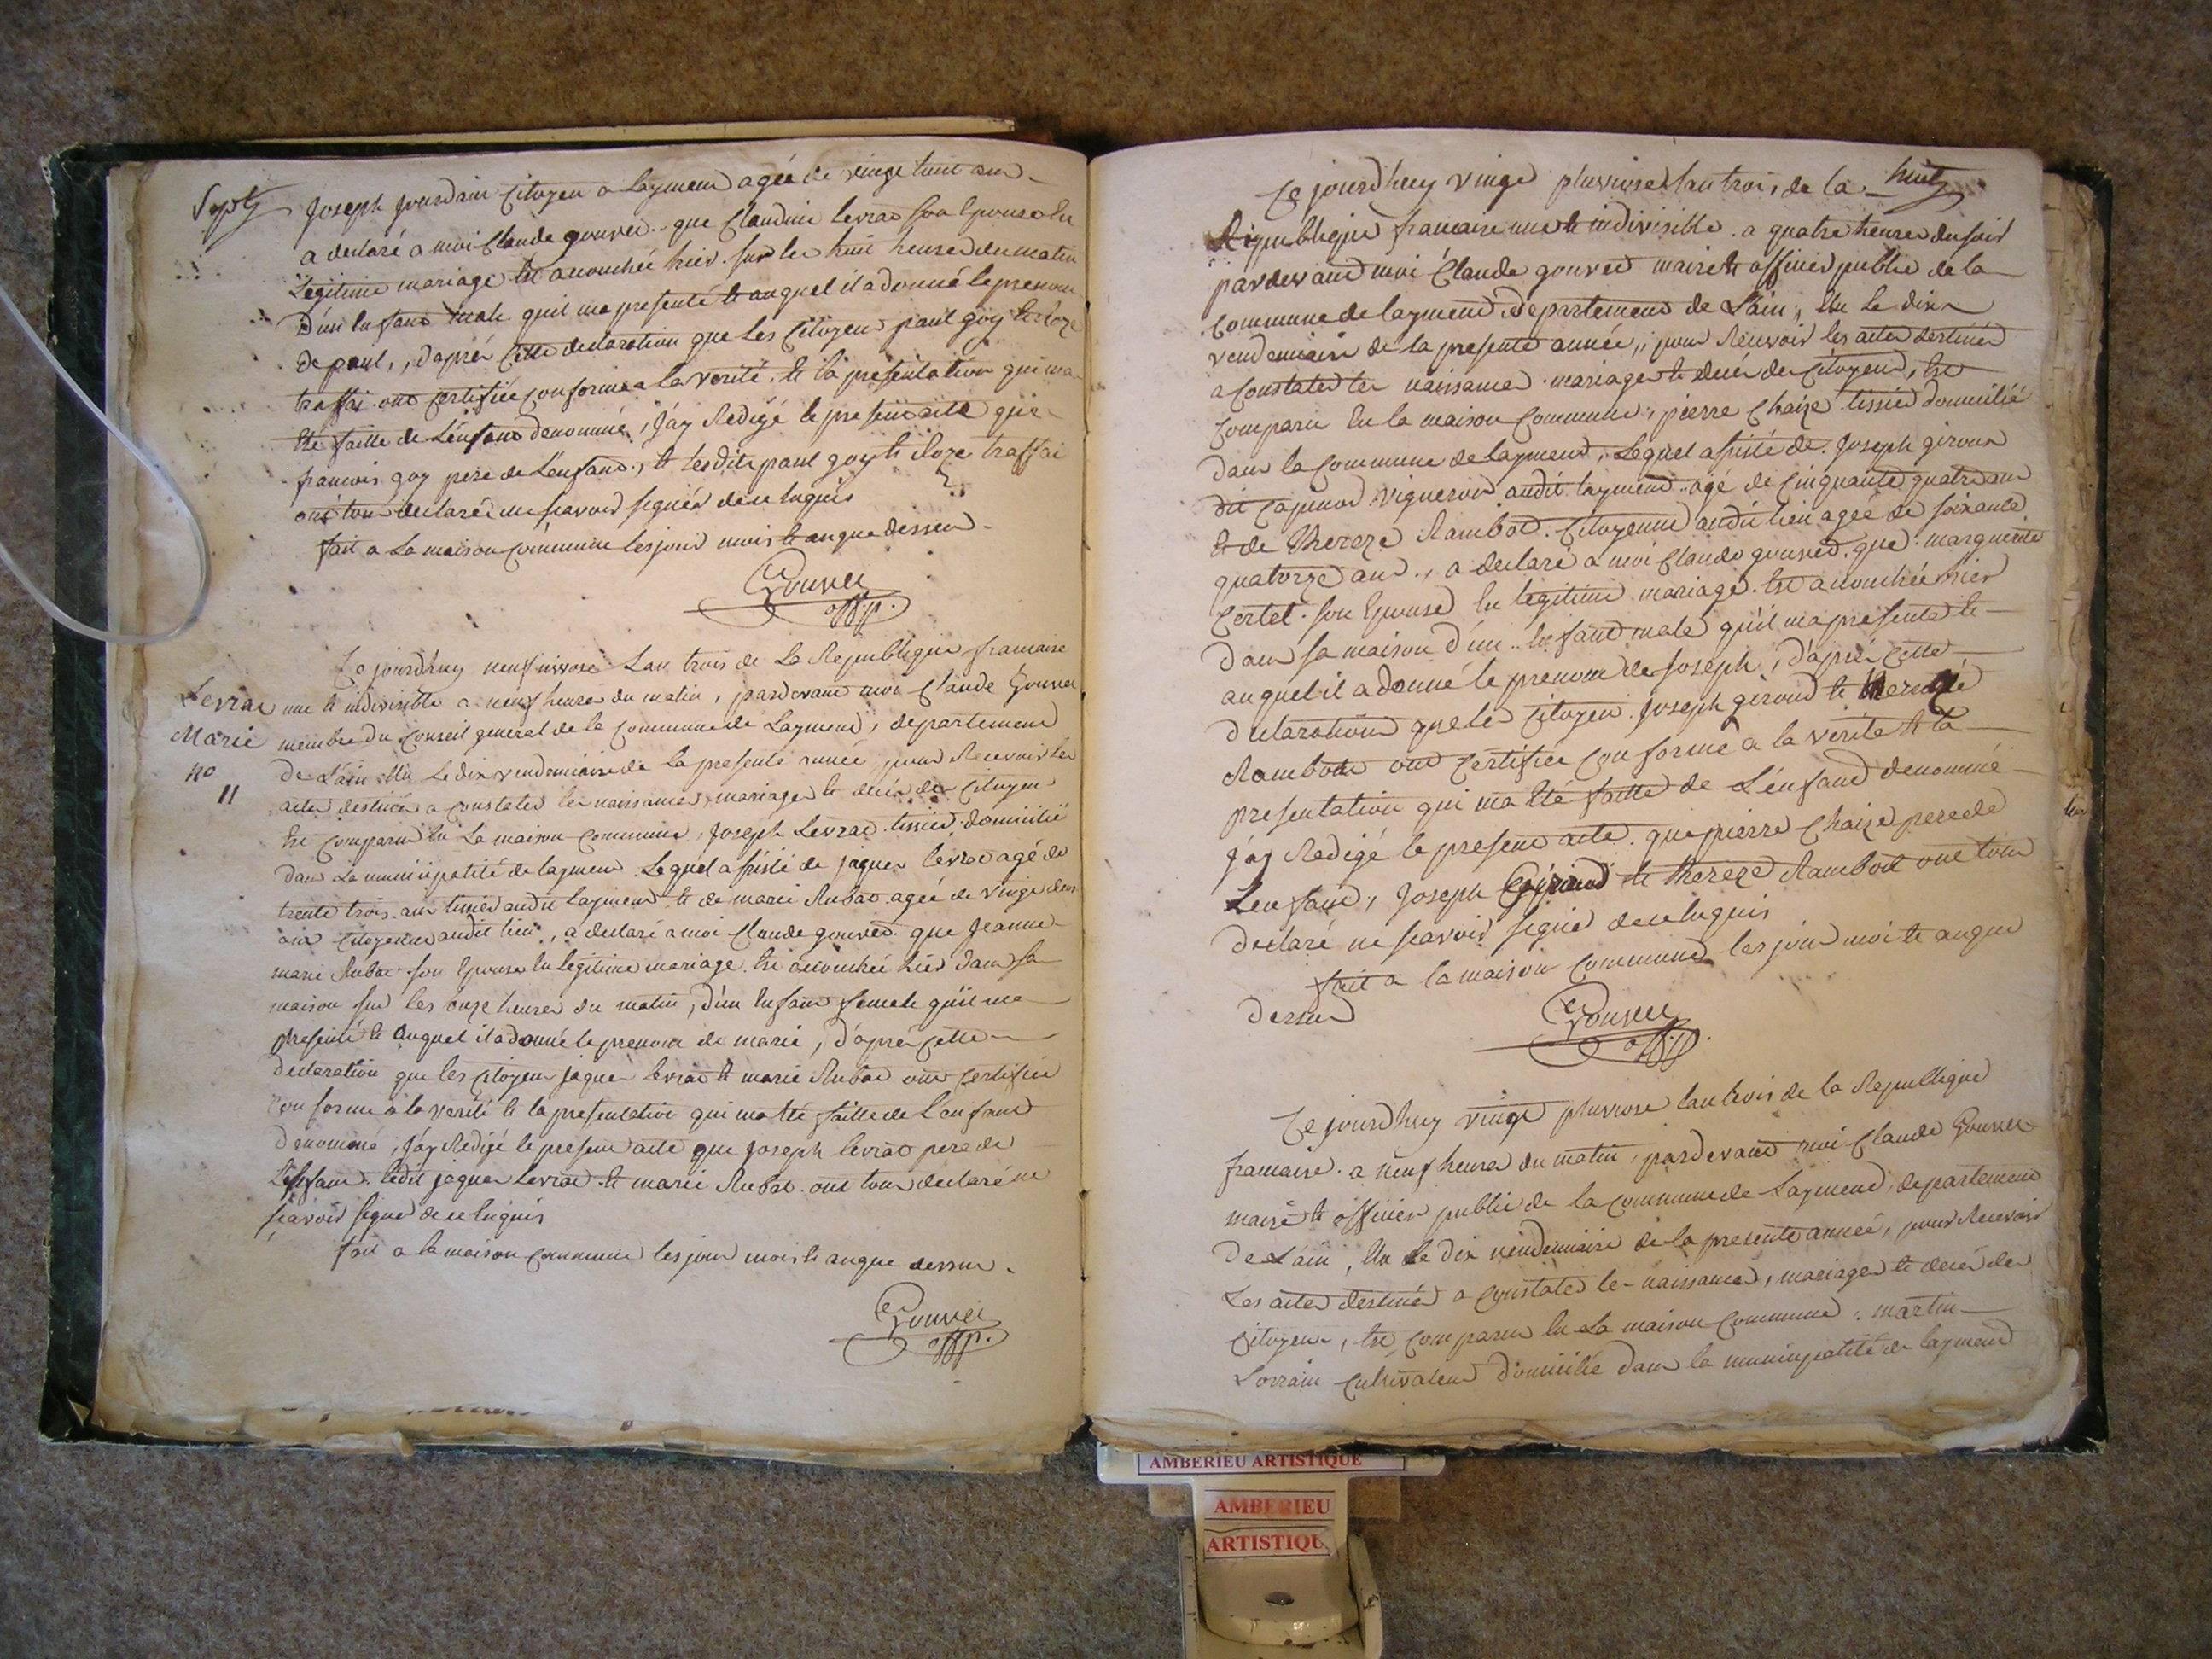 Septz
Joseph Jourdain Citoyen a Laymend agée de vingt huit ans
a declaré a moi Claude gouvec que Claudine levrac son Epouse En
Legitime mariage Est acouchée hier sur les huit heures du matin
d'un Enfans male quil ma presenté et auquel il a donné le prenom
de paul, d'aprés Cette declaration que les Citoyens paul goy et roze
traffai ont Certifiée Conforme a la verité, et la présentation qui ma
Eté faitte de L'énfant denommé, J'ay Redigé le présent acte que
francois goy pere de L'enfans, et lesdits paul goy et roze traffai
ont tous declaré ne scavoir signér de ce Enquis
fait a La maison Commune les jour mois et an que dessus
Gouvec
off. p.
Levrac
Marie
no
11
Ce jourd'huy neuf nivose Lan trois de La Republique francaise
une et indivisible a neuf heures du matin, pardevant moi Claude Gouvec
membre du Conseil general de la Commune de Laymend, departement
de L'ain Elu Le dix vendemiaire de la presente année pour Recevoir les
actes destinés a Constater les naissances, mariages et decés des Citoyens
Est Comparu En La maison Commune, Joseph Levrac tissier domicilié
dans La municipalité de laymend Lequel assisté de jaques levrac agé de
trente trois ans tissier audit Laymend et de marie Rubat agée de vingt deux
ans Citoyenne audit lieu, a declaré a moi Claude gouvec que Jeanne
marie Rubat son Epouse En legitime mariage Est acouchée hier dans sa
maison sur les onze heures du matin, d'un Enfans femele quil ma
presenté et auquel il a donné le prenom de marie, d'aprés Cette
declaration que les Citoyens jaques levrac et marie Rubat ont Certifiée
Conforme à la verité et la presentation qui ma Eté faitte de L'anfant
denommé, J'ay Redigé le present acte que Joseph levrac pere de
L'énfant ledit jaques Levrac et marie Rubat ont tous declaré ne
scavoir signer de ce Enquis
fait a la maison Commune les jour mois et an que dessus
Gouvec
off p.
huitz
Ce jourd'huy vingt pluviose lan trois de la
Republique francaise une et indivisible a quatre heures du soir
pardevant moi Claude gouvec maire et officier public de la
Commune de laymend departement de L'ain, Elu Le dix
vendemiaire de la presente année, pour Recevoir les actes destinés
a Constater les naissances mariages et decés des Citoyens, Est
Comparu En la maison Commune, pierre Chaize tissier domicilié
dans la Commune de laymend, Lequel assisté de Joseph giroud
dit vigneron audit laymend agé de Cinquante quatre ans
et de thereze Rambot Citoyenne audit lieu agée de soixante
quatorze ans, a declaré a moi Claude gouvec que marguerite
Certet son Epouse En legitime mariage Est acouchée hier
dans sa maison d'un Enfant male quil ma presenté et
auquel il a donné le prenom de Joseph, d'aprés Cette
declaration que les Citoyens Joseph giroud et thereze
Rambot ont Certifiée Conforme a la verité et la
presentation qui ma Eté faitte de L'énfant denommé
J'ay Redigé le present acte que pierre Chaize pere de
Lenfant, Joseph Giroud et thereze Rambot ont tous
declaré ne scavoir signer de ce Enquis
fait a la maison Commune les jour mois et an que
dessus
Gouvec
off. p.
Ce jourd'huy vingt pluviose lan trois de la Republique
francaise a neuf heures du matin, pardevant moi Claude Gouvec
maire et officier public de la Commune de Laymend, departement
de L'ain, Elu Le dix vendemiaire de la presente année, pour Recevoir
Les actes destinés a Constater les naissances, mariages et decés des
Citoyens, Est Comparu En La maison Commune, martin
Lorrain Cultivateur domicilié dans la municipalité de laymend
AMBERIEU ARTISTIQUE
AMBERIEU
ARTISTIQU